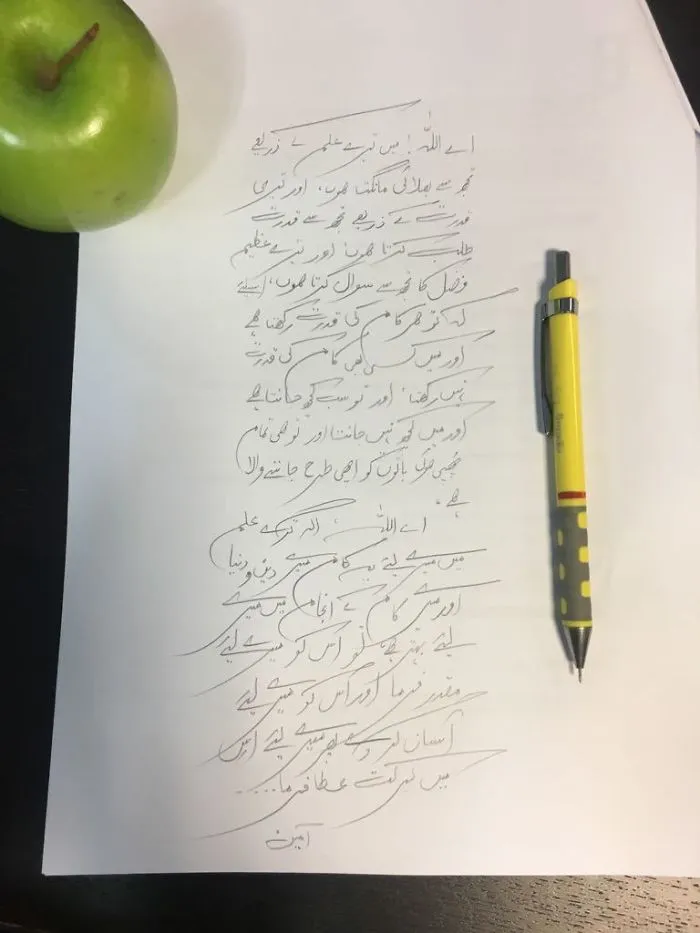 اے اللہ! میں تیرے علم کے ذریعے
تجھ سے بھلائی مانگتا ہوں، اور تیری
قدرت کے ذریعے تجھ سے قدرت
طلب کرتا ہوں اور تیرے عظیم
فضل کا تجھ سے سوال کرتا ہوں، اسلئے
کہ تو ہر کام کی قدرت رکھتا ہے
اور میں کسی بھی کام کی قدرت
نہیں رکھتا، اور تو سب کچھ جانتا ہے
اور میں کچھ نہیں جانتا اور تو ہی تمام
چھپی ہوئی باتوں کو اچھی طرح جاننے والا
ہے۔
اے اللہ! اگر تیرے علم
میں میرے لیئے یہ کام میرے دین و دنیا
اور میرے کام کے انجام میں میرے
لیئے بہتر ہے، تو اس کو میرے لیئے
مقدر فرما اور اس کو میرے لیئے
آسان کر دے پھر میرے لیئے اس
میں برکت عطا فرما.....
آمین